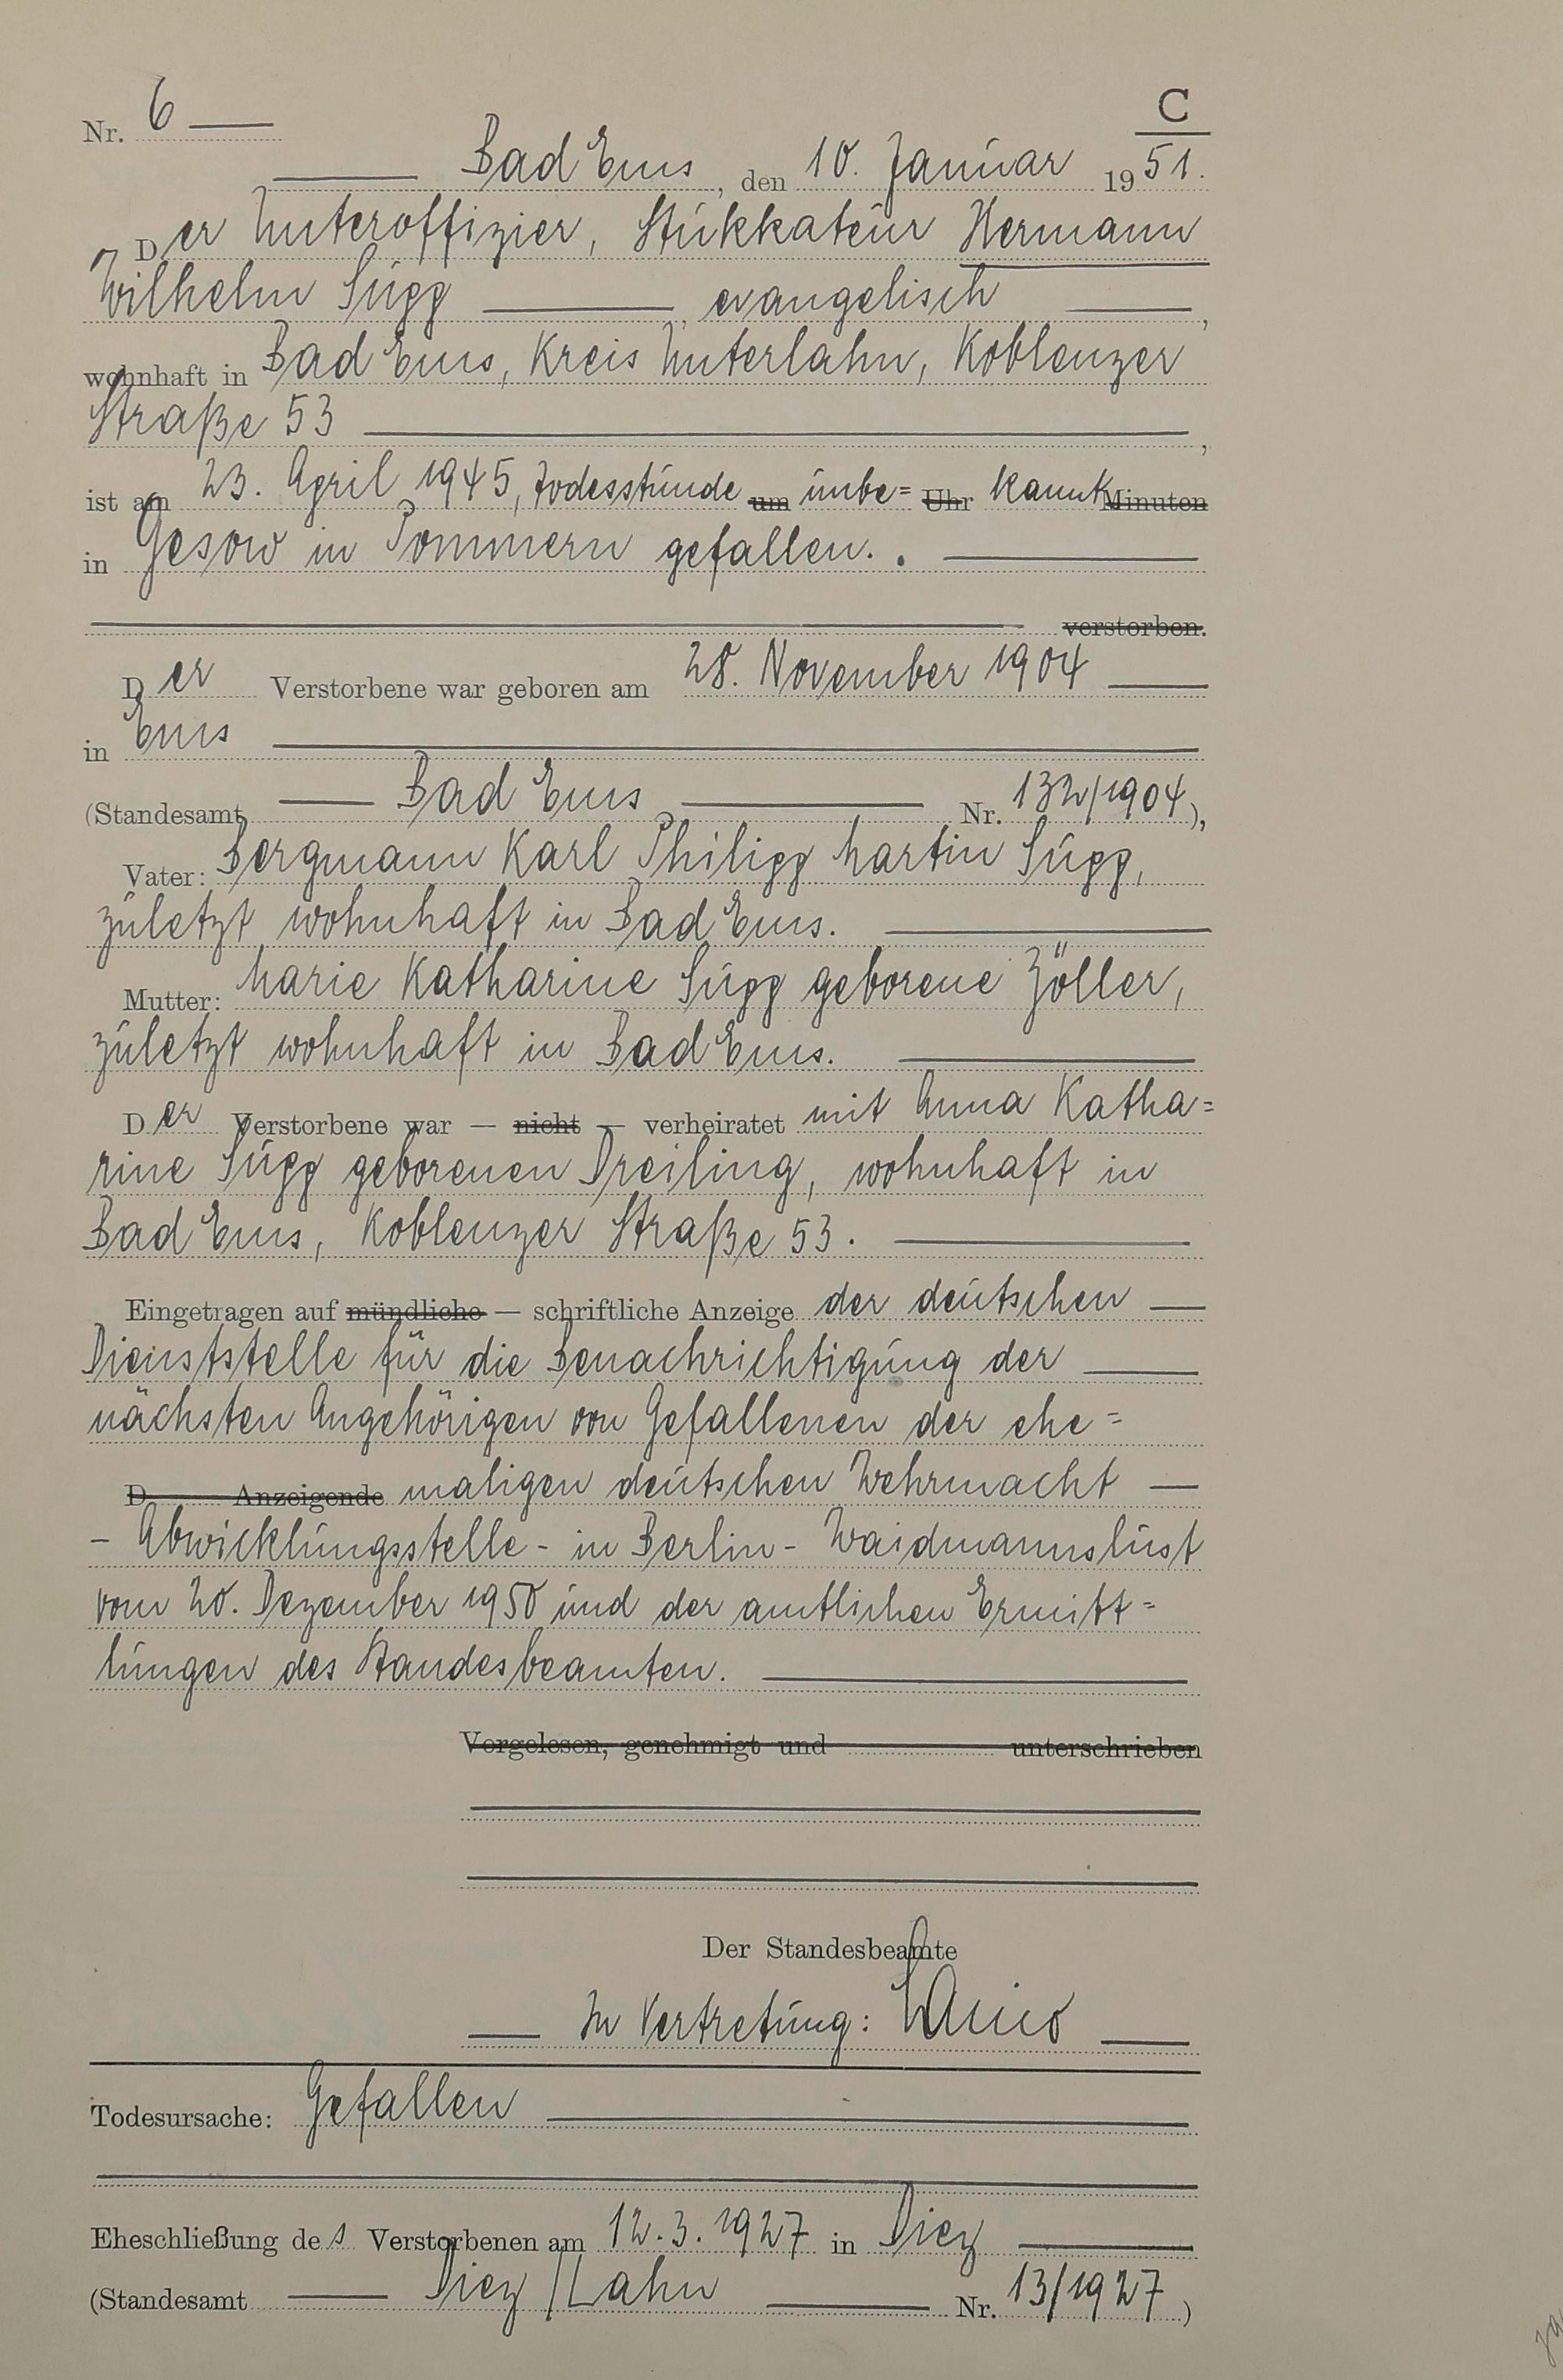 Nr. 6
C
Bad Ems, den 10. Januar 1951.
Der Unteroffizier, Stukkateur Hermann
Wilhelm Supp, evangelisch,
wohnhaft in Bad Ems, Kreis Unterlahn, Koblenzer
Straße 53,
ist am 23. April 1945, Todesstunde um unbe= Uhr kannt Minuten
in Gesow in Pommern gefallen. .
verstorben.
Der Verstorbene war geboren am 28. November 1904
in Ems
(Standesamt Bad Ems Nr. 132/1904),
Vater: Bergmann Karl Philipp Martin Supp,
zuletzt wohnhaft in Bad Ems.
Mutter: Marie Katharine Supp geborene Zöller,
zuletzt wohnhaft in Bad Ems.
Der Verstorbene war — nicht — verheiratet mit Anna Katha=
rine Supp geborenen Dreiling, wohnhaft in
Bad Ems, Koblenzer Straße 53.
Eingetragen auf mündliche — schriftliche Anzeige der deutschen
Dienststelle für die Benachrichtigung der
nächsten Angehörigen von Gefallenen der ehe=
D Anzeigende maligen deutschen Wehrmacht
- Abwicklungsstelle - in Berlin - Waidmannslust
vom 20. Dezember 1950 und der amtlichen Ermitt=
lungen des Standesbeamten.
Vorgelesen, genehmigt und unterschrieben
Der Standesbeamte
In Vertretung:
Todesursache: Gefallen
Eheschließung des Verstorbenen am 12.3.1927 in Diez
(Standesamt Diez/Lahn Nr. 13/1927)